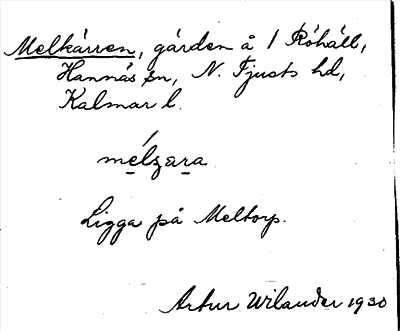 Melkärren, gärden å 1 Röhäll,
Hannäs sn, N. Tjusts hd,
Kalmar l.
mélzara
Ligga på Meltorp.
Artur Wilander 1930